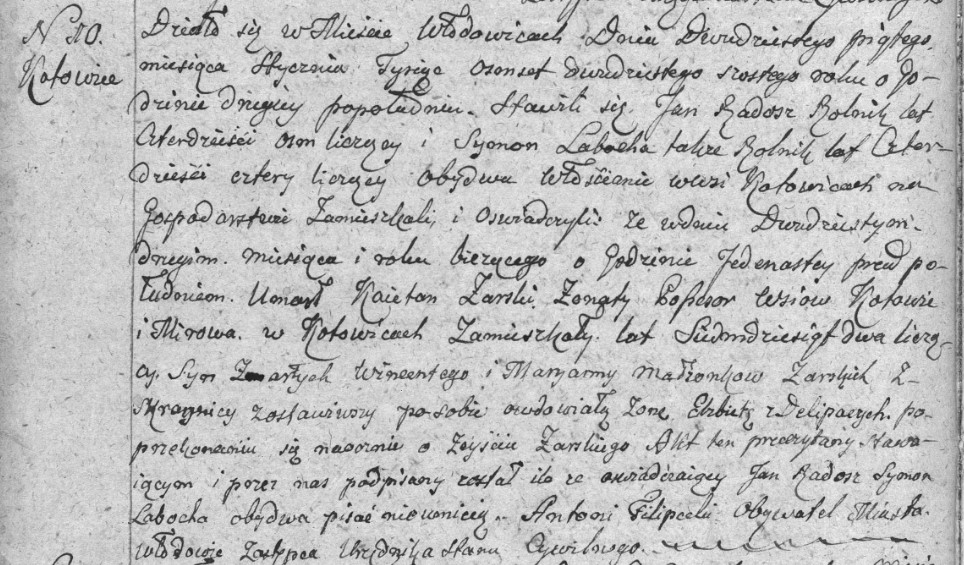 N 10.
Kotowice
Działo się w Mieście Włodowicach Dniu Dwudziestego piątego
miesiąca Stycznia Tysiąc Osmset dwudziestego szostego roku o go-
dzinie drugiey popołudniu. Stawili się Jan Radosz Rolnik lat
Czterdzieści osm liczący i Symon Labocha takze Rolnik lat Czter-
dzieści cztery liczący obydwa Włościanie wwsi Kotowicach na
Gospodarstwie Zamieszkali, i oswiadczyli: ze wdniu Dwudziestym.
drugim. miesiąca i roku bierzącego o godzinie Jedenastey przed po-
łudniem. Umarł Kaietan Zarski Zonaty Possesor Wsiow Kotowic
i Mirowa. w Kotowicach Zamieszkały. lat Siedmdziesiąt dwa liczą-
cy. Syn Zmarłych Wincentego i Maryanny małżonkow Zarskich z
zostawiwszy po sobie owdowiałą Zonę Elzbietę z po-
przekonaniu się naocznie o Zeyściu Zarskiego Akt ten przeczytany Stawa-
iącym i przez nas podpisany został ile ze oswiadczaiący Jan Radosz Symon
Labocha obydwa pisać nieumieią. Antoni Filipecki Obywatel Miasta
Włodowic Zastępca Urzędnika Stanu Cywilnego.